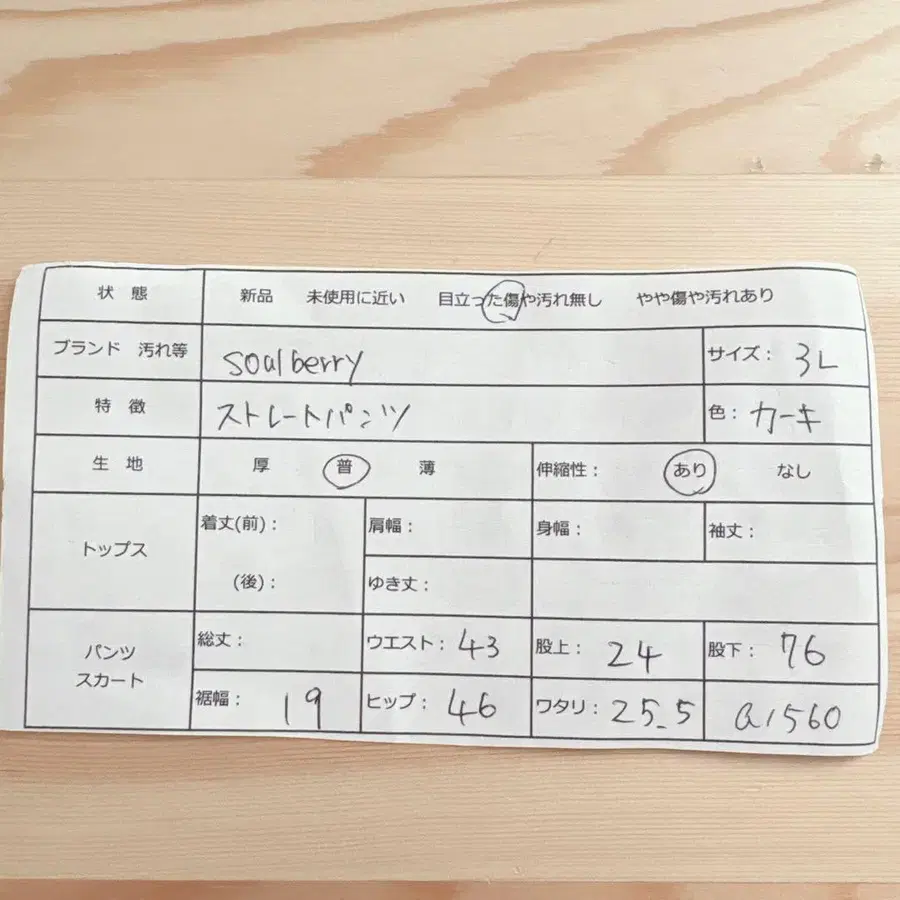 状 態 新品 未使用に近い 目立った傷や汚れ無し やや傷や汚れあり
ブランド 汚れ等 soulberry サイズ: 3L
特 徴 ストレートパンツ 色: カーキ
生 地 厚 普 薄 伸縮性: あり なし
トップス 着丈(前): 肩幅: 身幅: 袖丈:
(後): ゆき丈:
パンツ スカート 総丈: ウエスト: 43 股上: 24 股下: 76
裾幅: 19 ヒップ: 46 ワタリ: 25.5 a1560